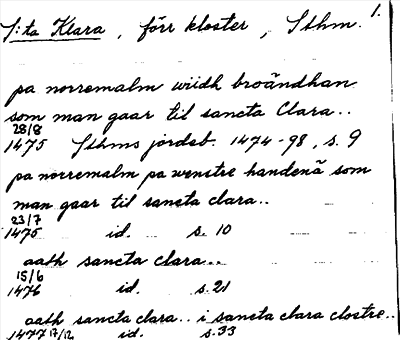 S:ta Klara, förr kloster, Sthm. 1.
pa norremalm wiidh broändhan
som man gaar til sancta Clara..
28/8
1475 Sthms jordeb. 1474-98, s. 9
pa norremalm pa wenstre handenā som
man gaar til sancta clara..
23/7
1475 id. s. 10
aath sancta clara...
15/6
1476 id. s. 21
aath sancta clara.. i sancta clara clostre..
1477 17/12 id. s. 33